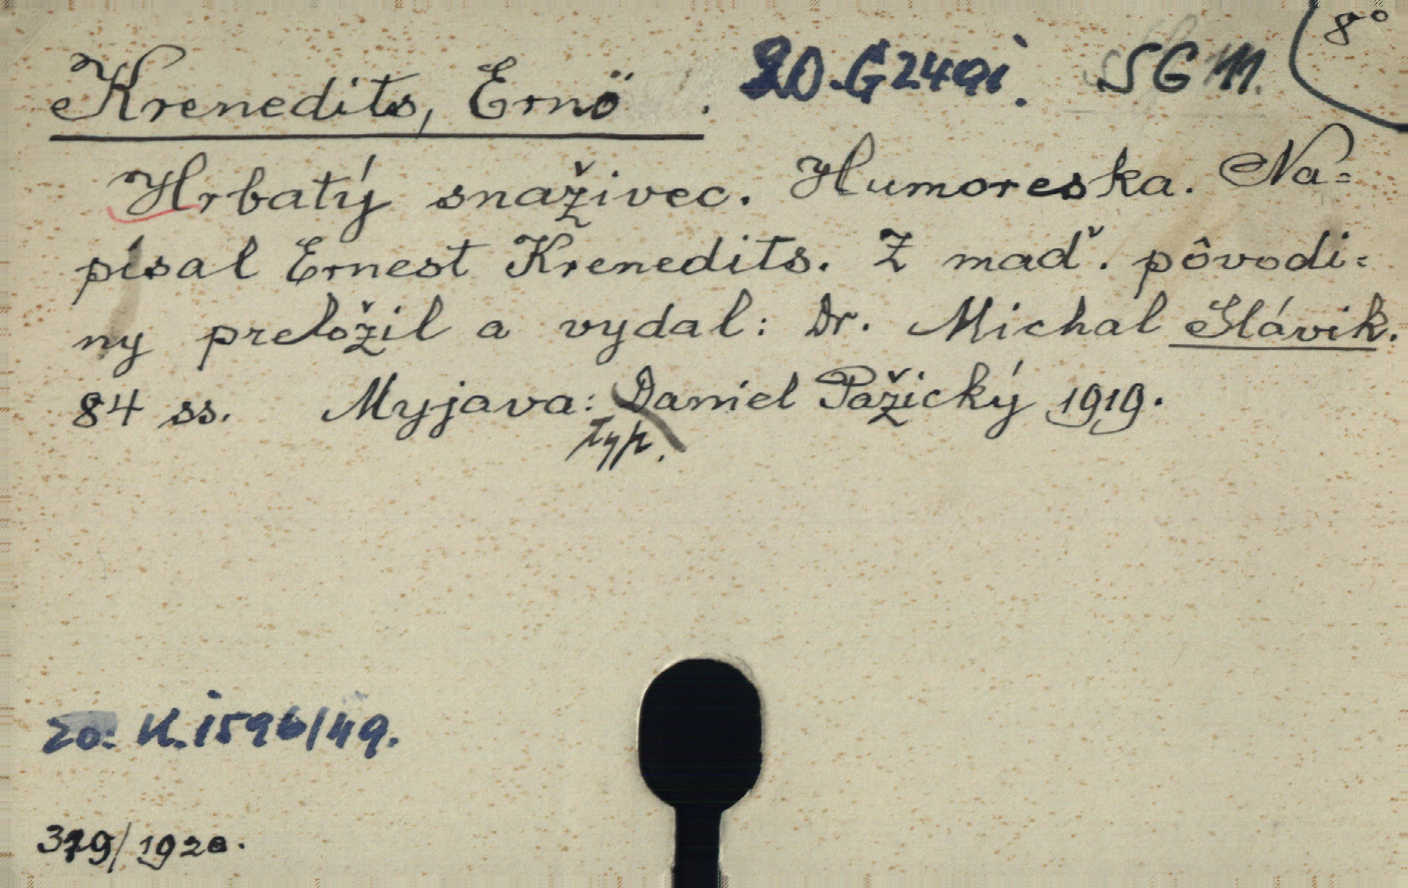 Krenedits, Ernö. 20.G249i. SG 11. 8°
Hrbatý snaživec. Humoreska. Na=
písal Ernest Krenedits. Z maď. pôvodi=
ny preložil a vydal: Dr. Michal Slávik.
84 ss. Myjava: Daniel Pažický 1919.
typ.
Zo: K.1596/49.
379/1920.